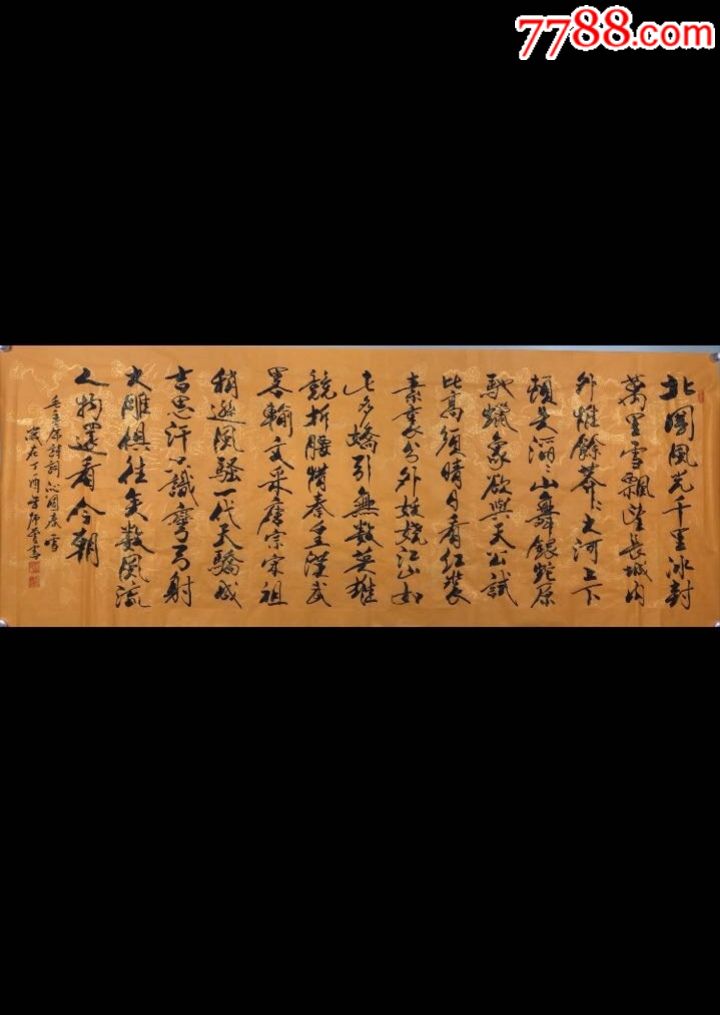 7788.com
北國風光千里冰封
萬里雪飄望長城内
外惟餘莽〻大河上下
頓失滔〻山舞銀蛇原
馳蠟象欲與天公試
比高須晴日看紅裝
素裹分外妖嬈江山如
此多嬌引無數英雄
競折腰惜秦皇漢武
畧輸文采唐宗宋祖
稍遜風騷一代天驕成
吉思汗只識彎弓射
大雕俱往矣數風流
人物還看今朝
毛主席詩詞沁園春雪
歲在丁酉書